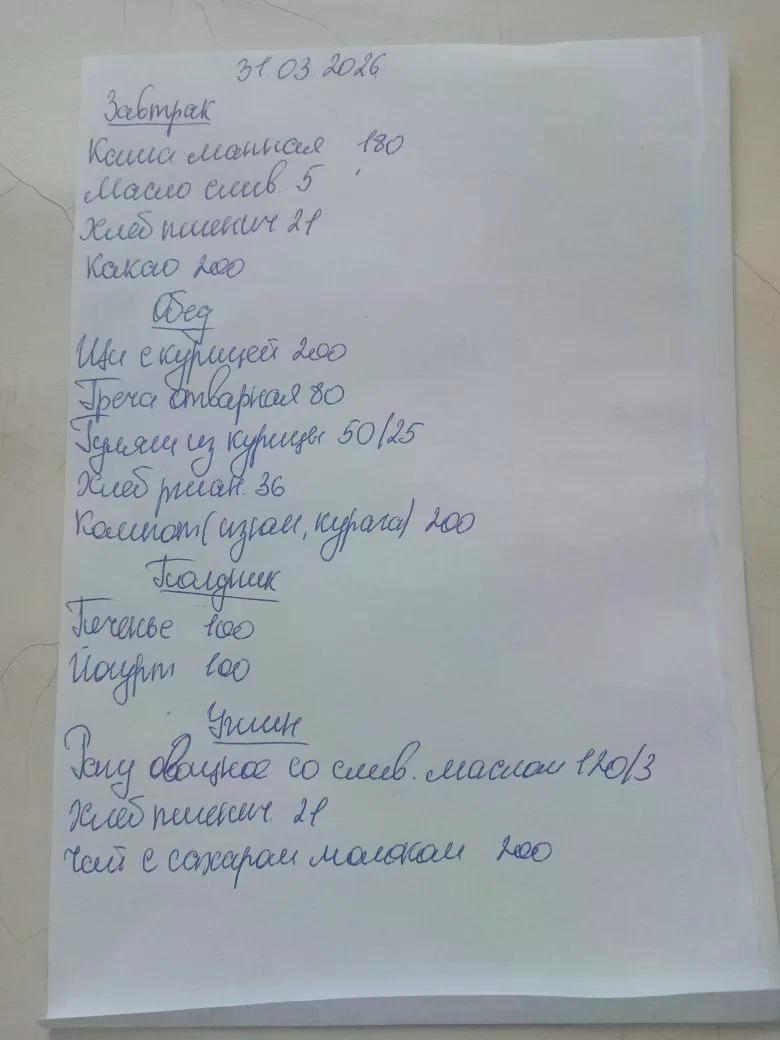 31.03.2026
Завтрак
Каша манная 180
Масло слив. 5
Хлеб пшенич 21
Какао 200
Обед
Щи с курицей 200
Греча отварная 80
Гуляш из курицы 50/25
Хлеб ржан. 36
Компот (изюм, курага) 200
Полдник
Печенье 100
Йогурт 100
Ужин
Рагу овощное со слив. маслом 120/3
Хлеб пшенич. 21
Чай с сахаром молоком 200